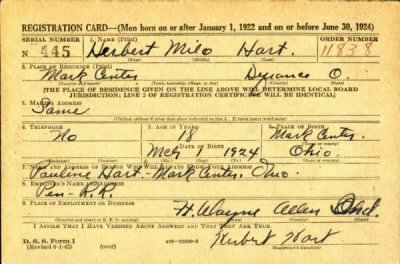 REGISTRATION CARD—(Men born on or after January 1, 1922 and on or before June 30, 1924)
SERIAL NUMBER 1. NAME (Print) ORDER NUMBER
N 445 Herbert Milo Hart 11838
(First) (Middle) (Last)
2. PLACE OF RESIDENCE (Print)
Mark Center Defiance O.
(Town, township, village, or city) (County) (State)
[THE PLACE OF RESIDENCE GIVEN ON THE LINE ABOVE WILL DETERMINE LOCAL BOARD
JURISDICTION; LINE 2 OF REGISTRATION CERTIFICATE WILL BE IDENTICAL]
3. MAILING ADDRESS
Same
4. TELEPHONE 5. AGE IN YEARS 6. PLACE OF BIRTH
No 18 Mark Center
DATE OF BIRTH
1924 Ohio
7. NAME AND ADDRESS OF PERSON WHO WILL ALWAYS KNOW YOUR ADDRESS
Pauline Hart - Mark Center, Ohio
8. EMPLOYER'S NAME AND ADDRESS
Pen- R.R.
9. PLACE OF EMPLOYMENT OR BUSINESS
H. Wayne Allen
I AFFIRM THAT I HAVE VERIFIED ABOVE ANSWERS AND THAT THEY ARE TRUE.
D. S. S. Form 1
(Revised 6-1-42) Herbert Hart
(Registrant's signature)